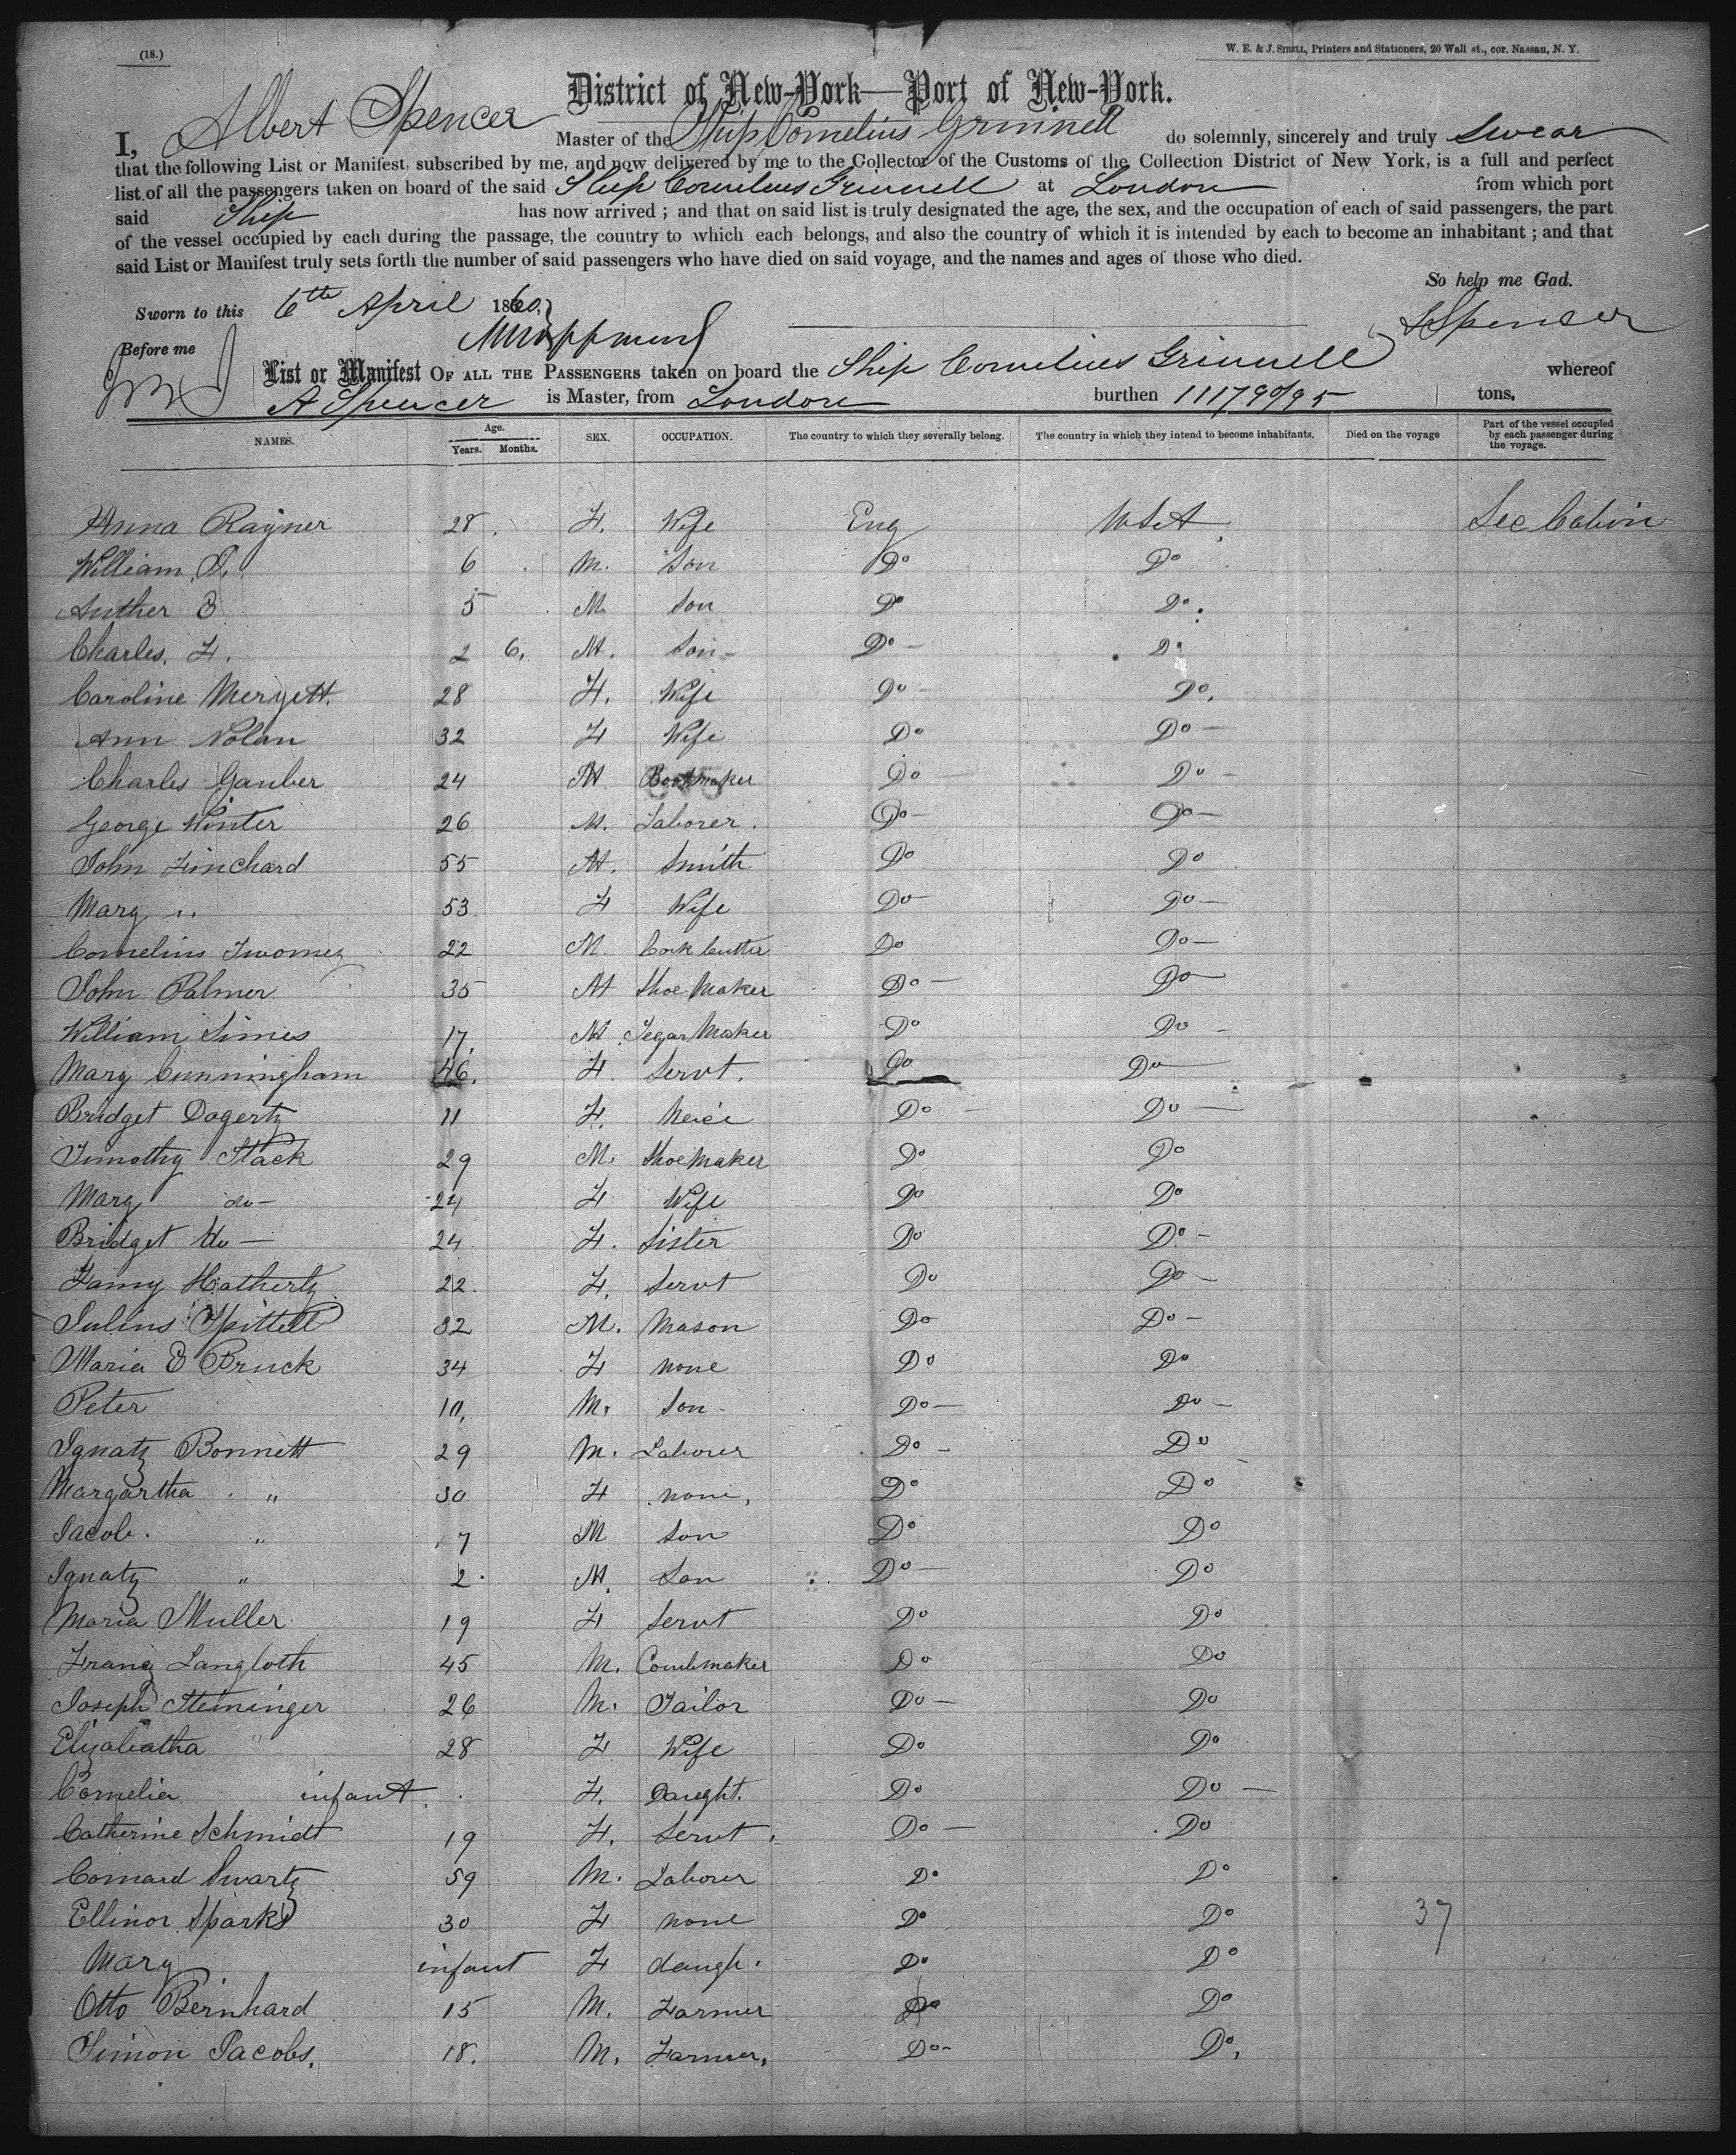 (18.)
W. E. & J. SIBELL, Printers and Stationers, 20 Wall st., cor. Nassau, N. Y.
District of New-York—Port of New-York.
I, Albert Spencer Master of the Ship Cornelius Grinnell do solemnly, sincerely and truly Swear
that the following List or Manifest, subscribed by me, and now delivered by me to the Collector of the Customs of the Collection District of New York, is a full and perfect
list of all the passengers taken on board of the said Ship Cornelius Grinnell at London from which port
said Ship has now arrived ; and that on said list is truly designated the age, the sex, and the occupation of each of said passengers, the part
of the vessel occupied by each during the passage, the country to which each belongs, and also the country of which it is intended by each to become an inhabitant ; and that
said List or Manifest truly sets forth the number of said passengers who have died on said voyage, and the names and ages of those who died.
So help me Gad.
Sworn to this 6th April 1860,
A Spencer
Before me
List or Manifest OF ALL THE PASSENGERS taken on board the Ship Cornelius Grinnell whereof
A Spencer is Master, from London burthen 1117 90/95 tons.
NAMES. Age. Years. Months. SEX. OCCUPATION. The country to which they severally belong. The country in which they intend to become inhabitants. Died on the voyage Part of the vessel occupied by each passenger during the voyage.
Anna Rayner 28 F. Wife Eng USA Sec Cabin
William 6 M. Son Do Do
Auther 5 M Son Do Do
Charles. F. 2 6. M. Son Do Do
Caroline Meryett. 28 F. Wife Do Do.
Ann Nolan 32 F Wife Do Do
Charles Gauber 24 M Bootmaker Do Do
George Winter 26 M. Laborer. Do Do
John Finchard 55 M. Smith Do Do
Mary " 53 F Wife Do Do
Cornelius Twomey 22 M. Cork Cutter Do Do
John Palmer 35 M Shoe Maker Do Do
William Simes 17 M. Segar Maker Do Do
Mary Cunningham 46. F. Servt. Do Do
Bridget Dogerty 11 F. Neice Do Do
Timothy Stack 29 M. Shoemaker Do Do
Mary do 24 F Wife Do Do
Bridget do 24 F. Sister Do Do
Fanny Hatherty 22. F. Servt Do Do
Julius Spittell 32 M. Mason Do Do
Maria Bruck 34 F none Do Do
Peter 10, M. Son Do Do
Ignatz Bonnett 29 M. Laborer Do Do
Margartha " 30 F none, Do Do
Jacob. " 7 M Son Do Do
Ignatz " 2 M. Son Do Do
Maria Muller 19 F Servt Do Do
Franz Langloth 45 M. Combmaker Do Do
Joseph Steininger 26 M. Tailor Do Do
Elizabatha " 28 F Wife Do Do
Cornelia infant F. Daught. Do Do
Catherine Schmidt 19 F. Servt. Do Do
Connard Swartz 59 M. Laborer Do Do
Ellinor Sparks 30 F none Do Do 37
Mary infant F daugh. Do Do
Otto Bernhard 15 M. Farmer Do Do
Simon Jacobs. 18. M. Farmer, Do Do,